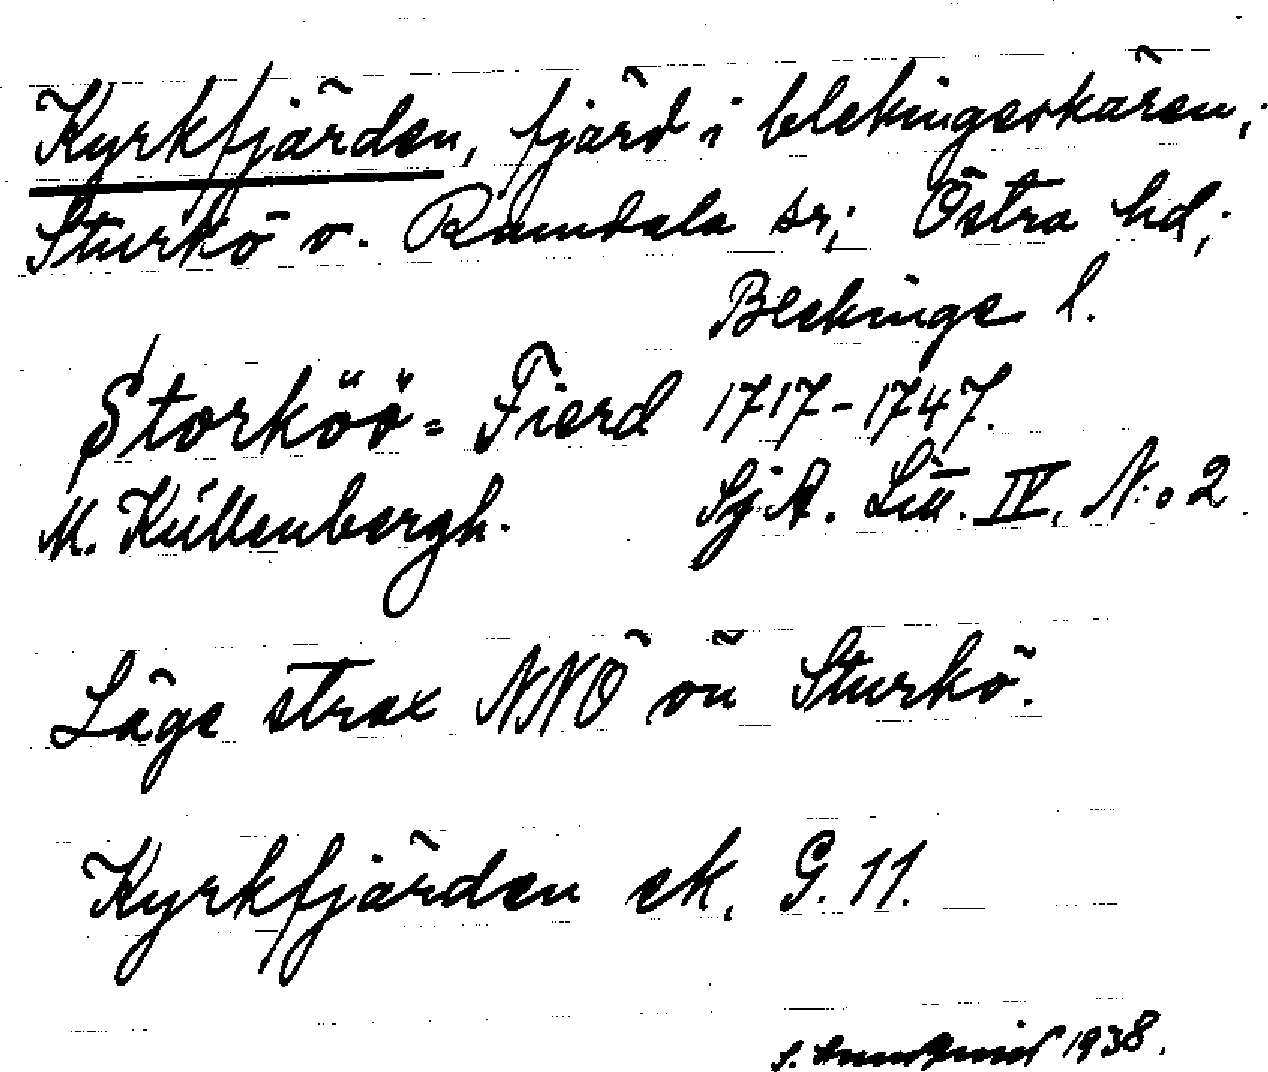 Kyrkfjärden, fjärd i blekingeskären;
Sturkö o. Ramdala sr; Östra hd;
Blekinge l.
Storköö= Fierd 1717-1747.
M. Küllenbergh. Sj.A. Litt. IV, N:o 2
Läge strax NNÖ om Sturkö.
Kyrkfjärden ek. G. 11.
S. 1938.